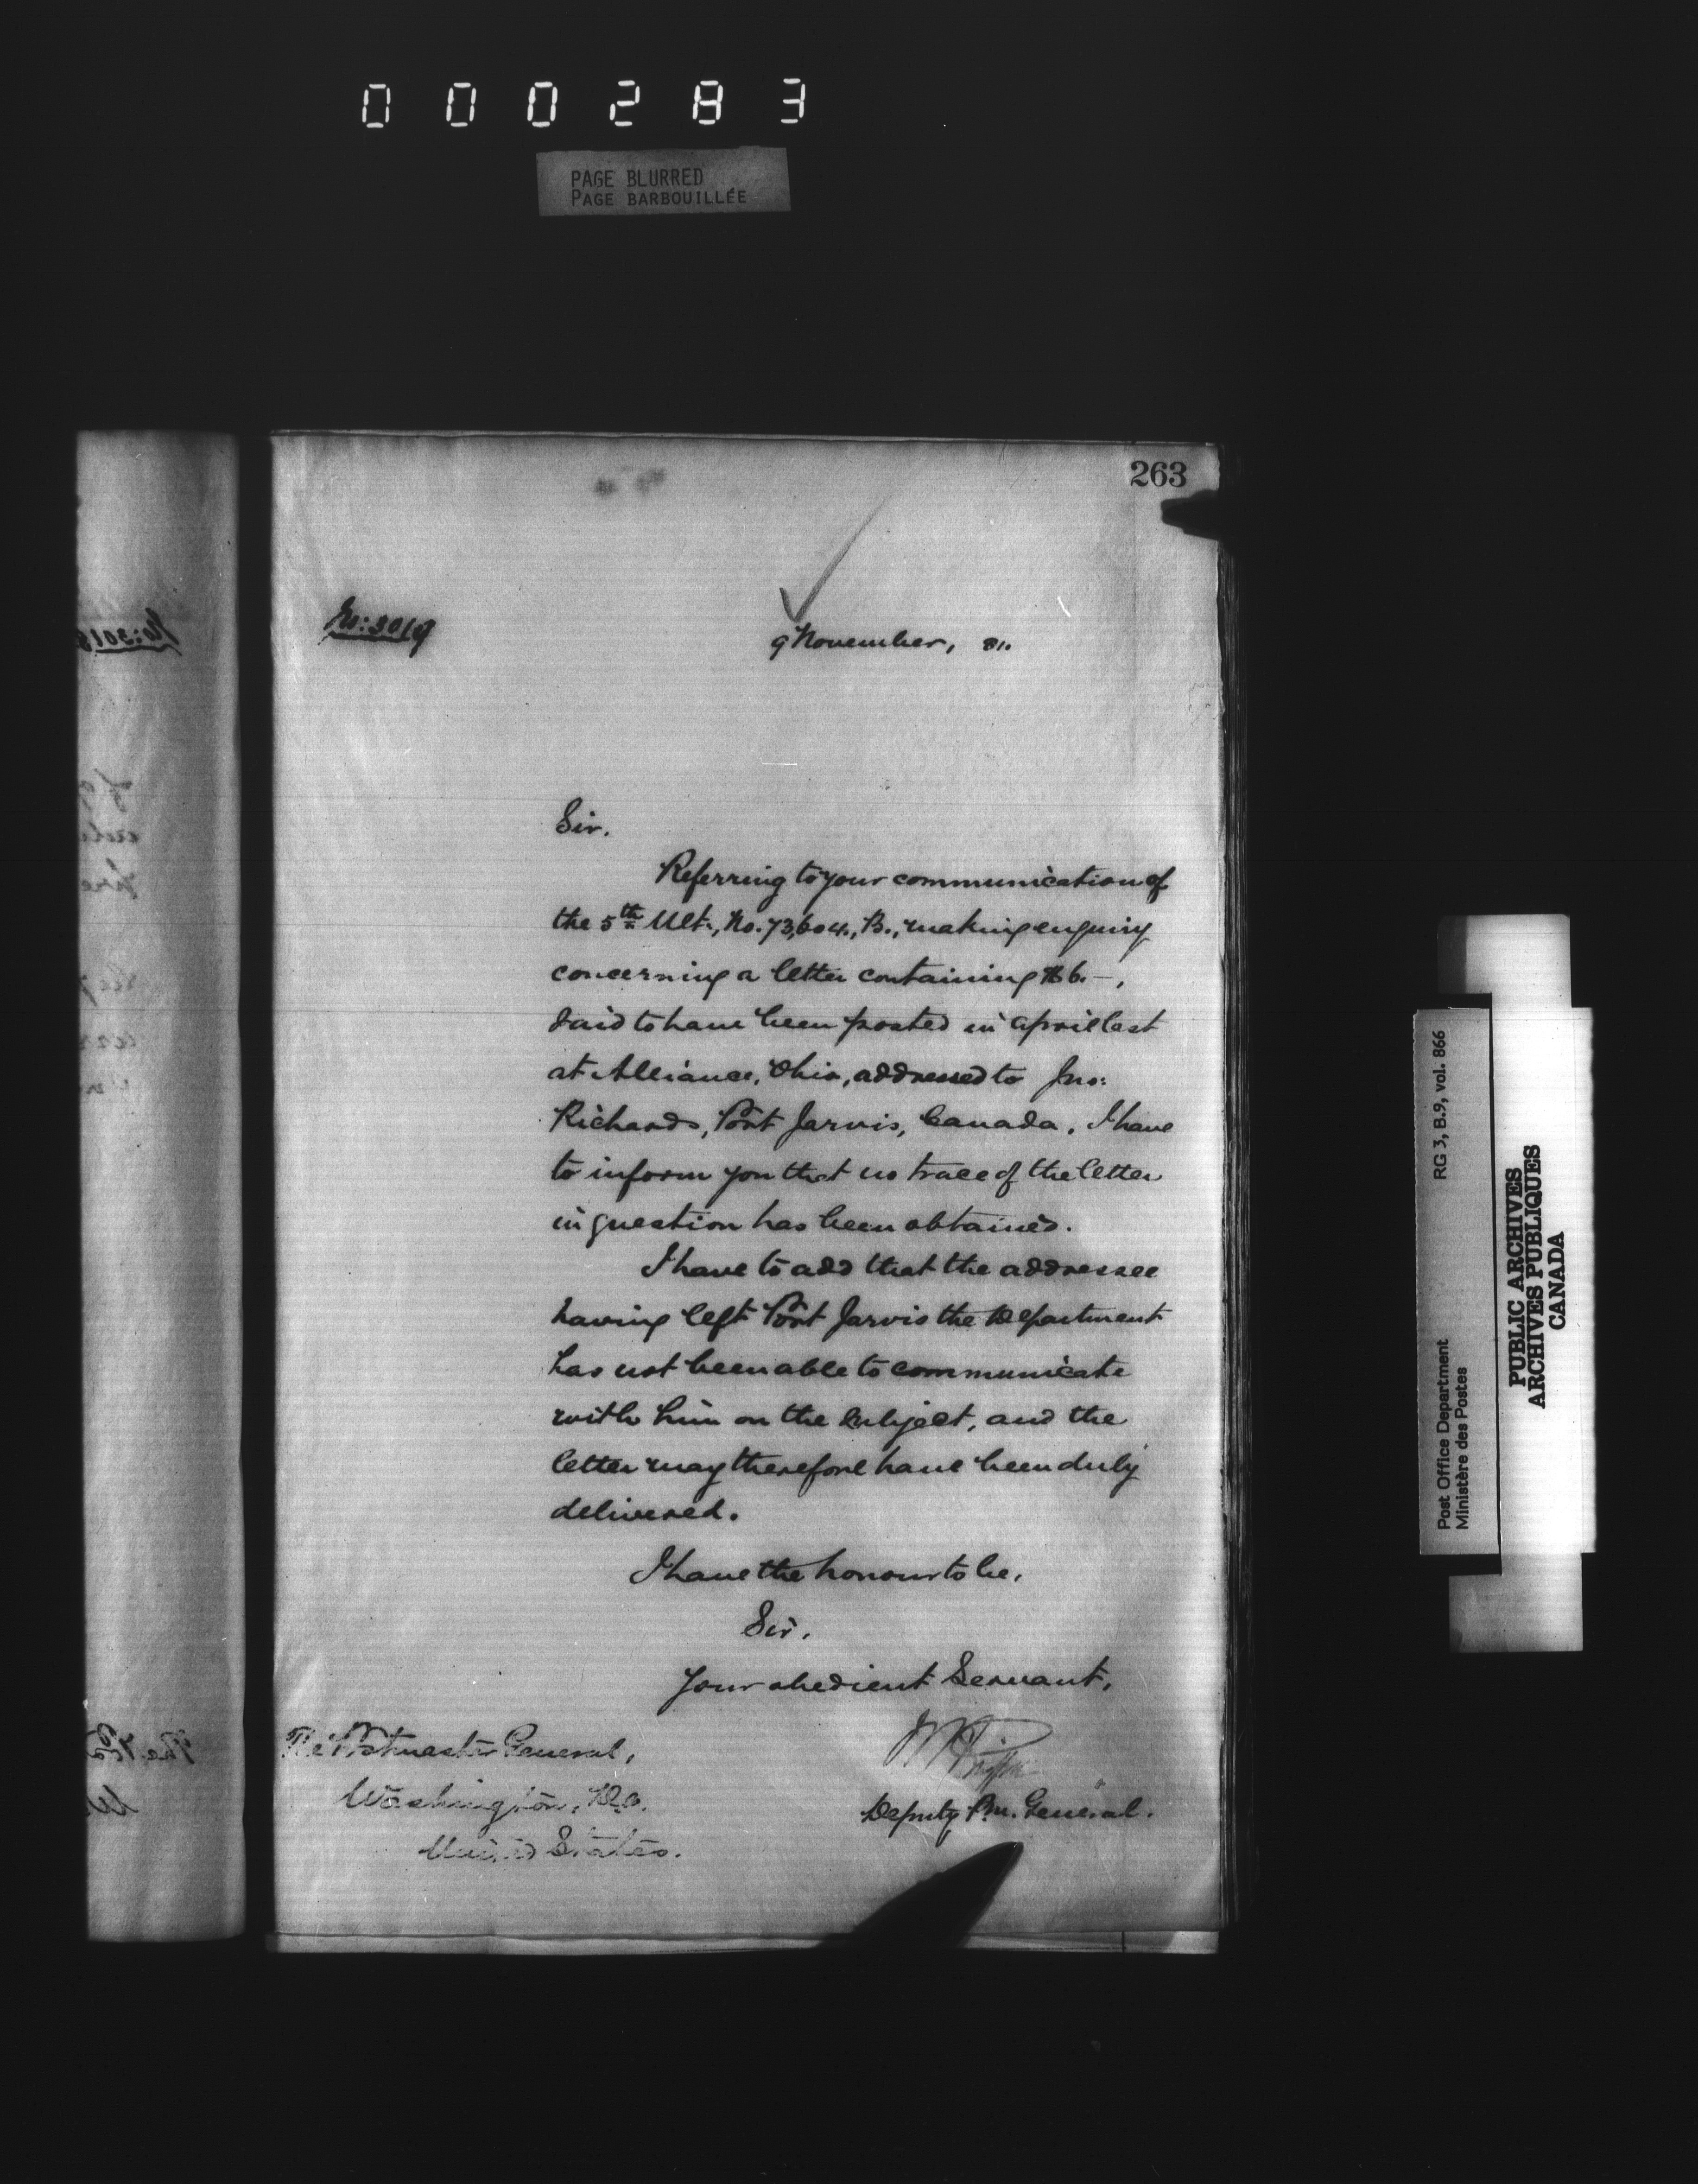 000283
PAGE BLURRED
PAGE BARBOUILLÉE
263
No: 3019
9 November, 81.
Sir.
Referring to your communication of
the 5th Ult., No. 73,604., B., making enquiry
concerning a letter containing $6.–,
said to have been posted in April last
at Alliance, Ohio, addressed to Jno:
Richards, Port Jarvis, Canada. I have
to inform you that no trace of the letter
in question has been obtained.
I have to add that the addressee
having left Port Jarvis the Department
has not been able to communicate
with him on the subject, and the
letter may therefore have been duly
delivered.
I have the honour to be,
Sir,
Your obedient Servant,
Deputy P.M. General.
The Postmaster General,
Washington, D.C.
United States.
RG 3, B.9, vol. 866
Post Office Department
Ministère des Postes
PUBLIC ARCHIVES
ARCHIVES PUBLIQUES
CANADA